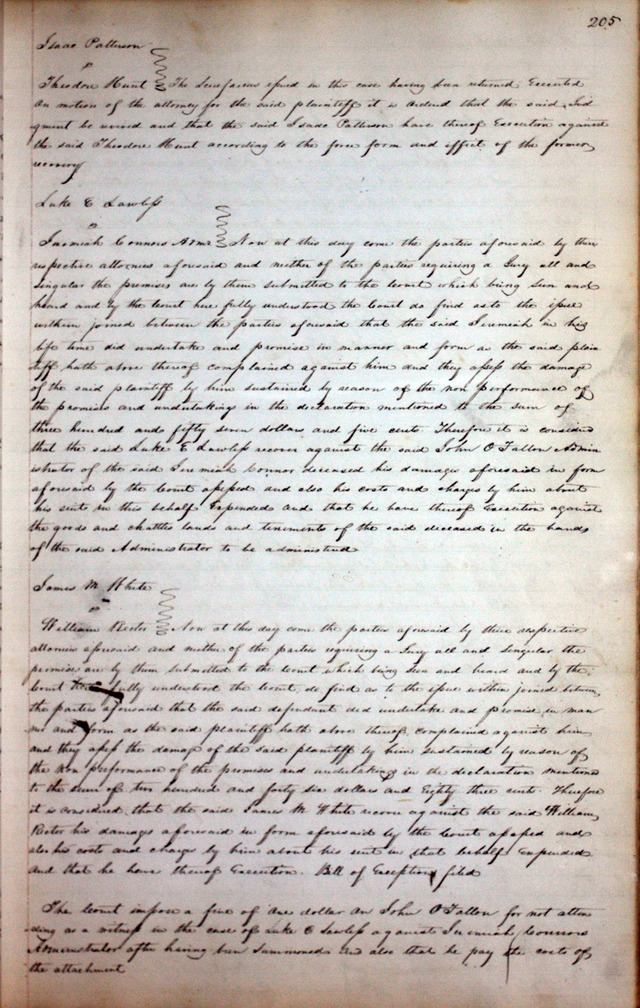 205
Isaac Patterson
vs
Theodore Hunt The Scirefacias issued in this case having been returned Executed
On motion of the attorney for the said plaintiff it is ordered that the said Jud
gment be revived and that the said Isaac Patterson have thereof Execution against
the said Theodore Hunt according to the force form and effect of the former
recovery
Luke E Lawless
vs
Jeremiah Connors Admr Now at this day come the parties aforesaid by their
respective attornies aforesaid and neither of the parties requiring a Jury all and
singular the premises are by them submitted to the Court which being seen and
heard and by the Court here fully understood the Court do find as to the issue
within joined between the parties aforesaid that the said Jeremiah in his
life time did undertake and promise in manner and form as the said plain
tiff hath above thereof complained against him and they assess the damage
of the said plaintiff by him sustained by reason of the non performance of
the promises and undertakings in the declaration mentioned to the sum of
three hundred and fifty seven dollars and five cents Therefore it is considered
that the said Luke E Lawless recover against the said John O'Fallon Admin
istrator of the said Jeremiah Connor deceased his damages aforesaid in form
aforesaid by the Court assessed and also his costs and charges by him about
his suit in this behalf Expended and that he have thereof Execution against
the goods and chattles lands and tenements of the said deceased in the hands
of the said Administrator to be administered
James M White
vs
William Rector Now at this day come the parties aforesaid by their respective
attornies aforesaid and neither of the parties requiring a Jury all and singular the
premises are by them submitted to the Court which being seen and heard and by the
Court here fully understood the Court do find as to the issue within joined between
the parties aforesaid that the said defendant did undertake and promise in man
ner and form as the said plaintiff hath above thereof complained against him
and they assess the damage of the said plaintiff by him sustained by reason of
the non performance of the promises and undertakings in the declaration mentioned
to the sum of two hundred and forty six dollars and Eighty three cents Therefore
it is considered that the said James M White recover against the said William
Rector his damages aforesaid in form aforesaid by the Court assessed and
also his costs and charges by him about his suit in that behalf Expended
and that he have thereof Execution. Bill of Exceptions filed
The Court impose a fine of One dollar on John O'Fallon for not atten
ding as a witness in the case of Luke E Lawless against Jeremiah Connors
Administrator after having been summoned and also that he pay the costs of
the attachment